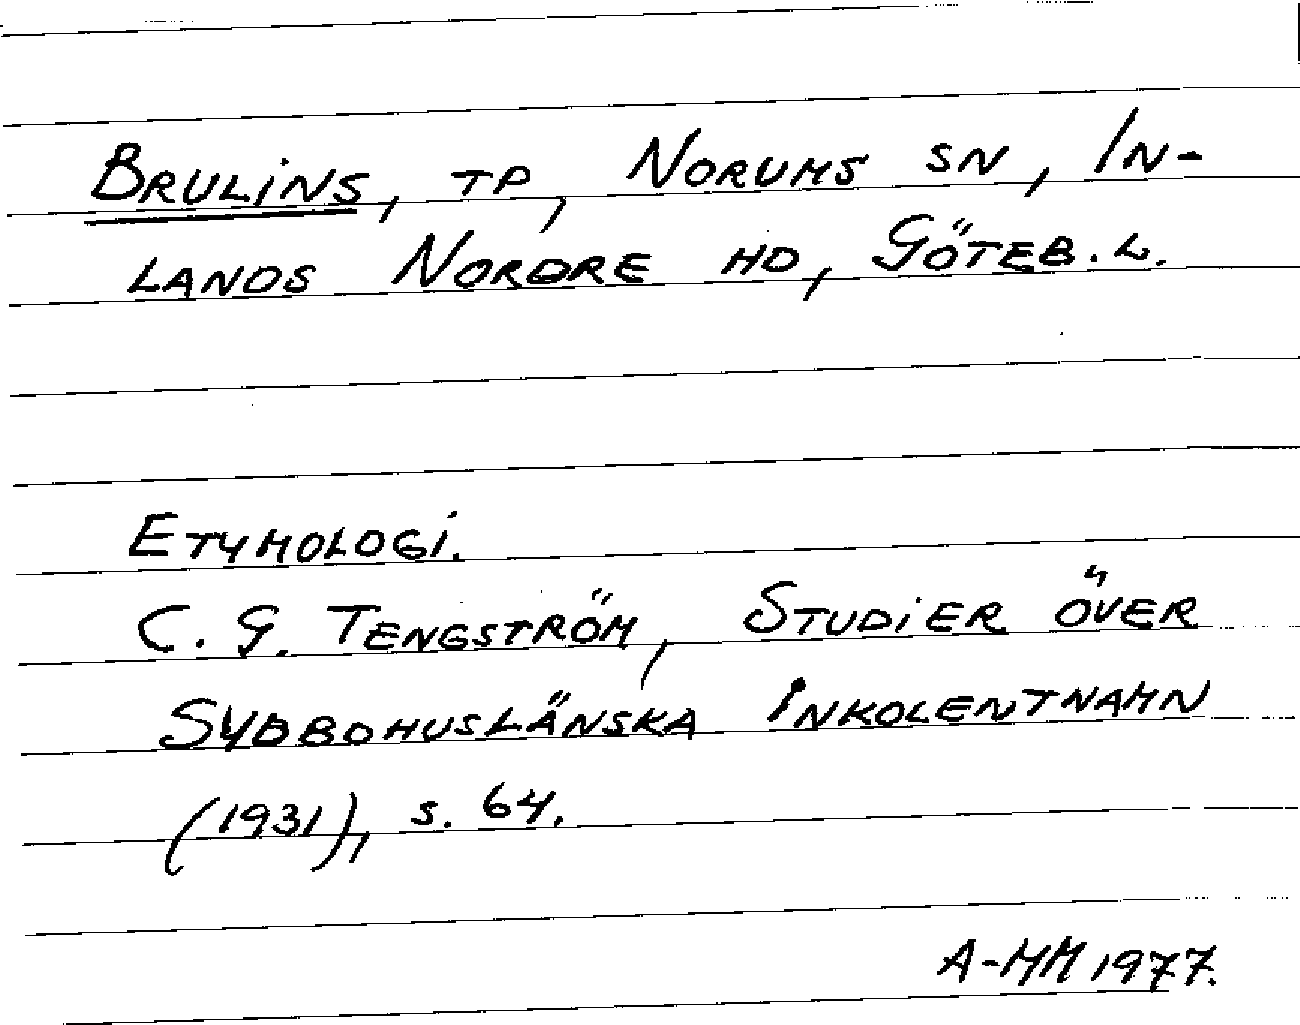 BRULINS, TP, NORUMS SN, IN-
LANDS NORDRE HD, GÖTEB. L.
ETYMOLOGI.
C. G. TENGSTRÖM, STUDIER ÖVER
SYDBOHUSLÄNSKA INKOLENTNAMN
(1931), s. 64.
A-MM 1977.